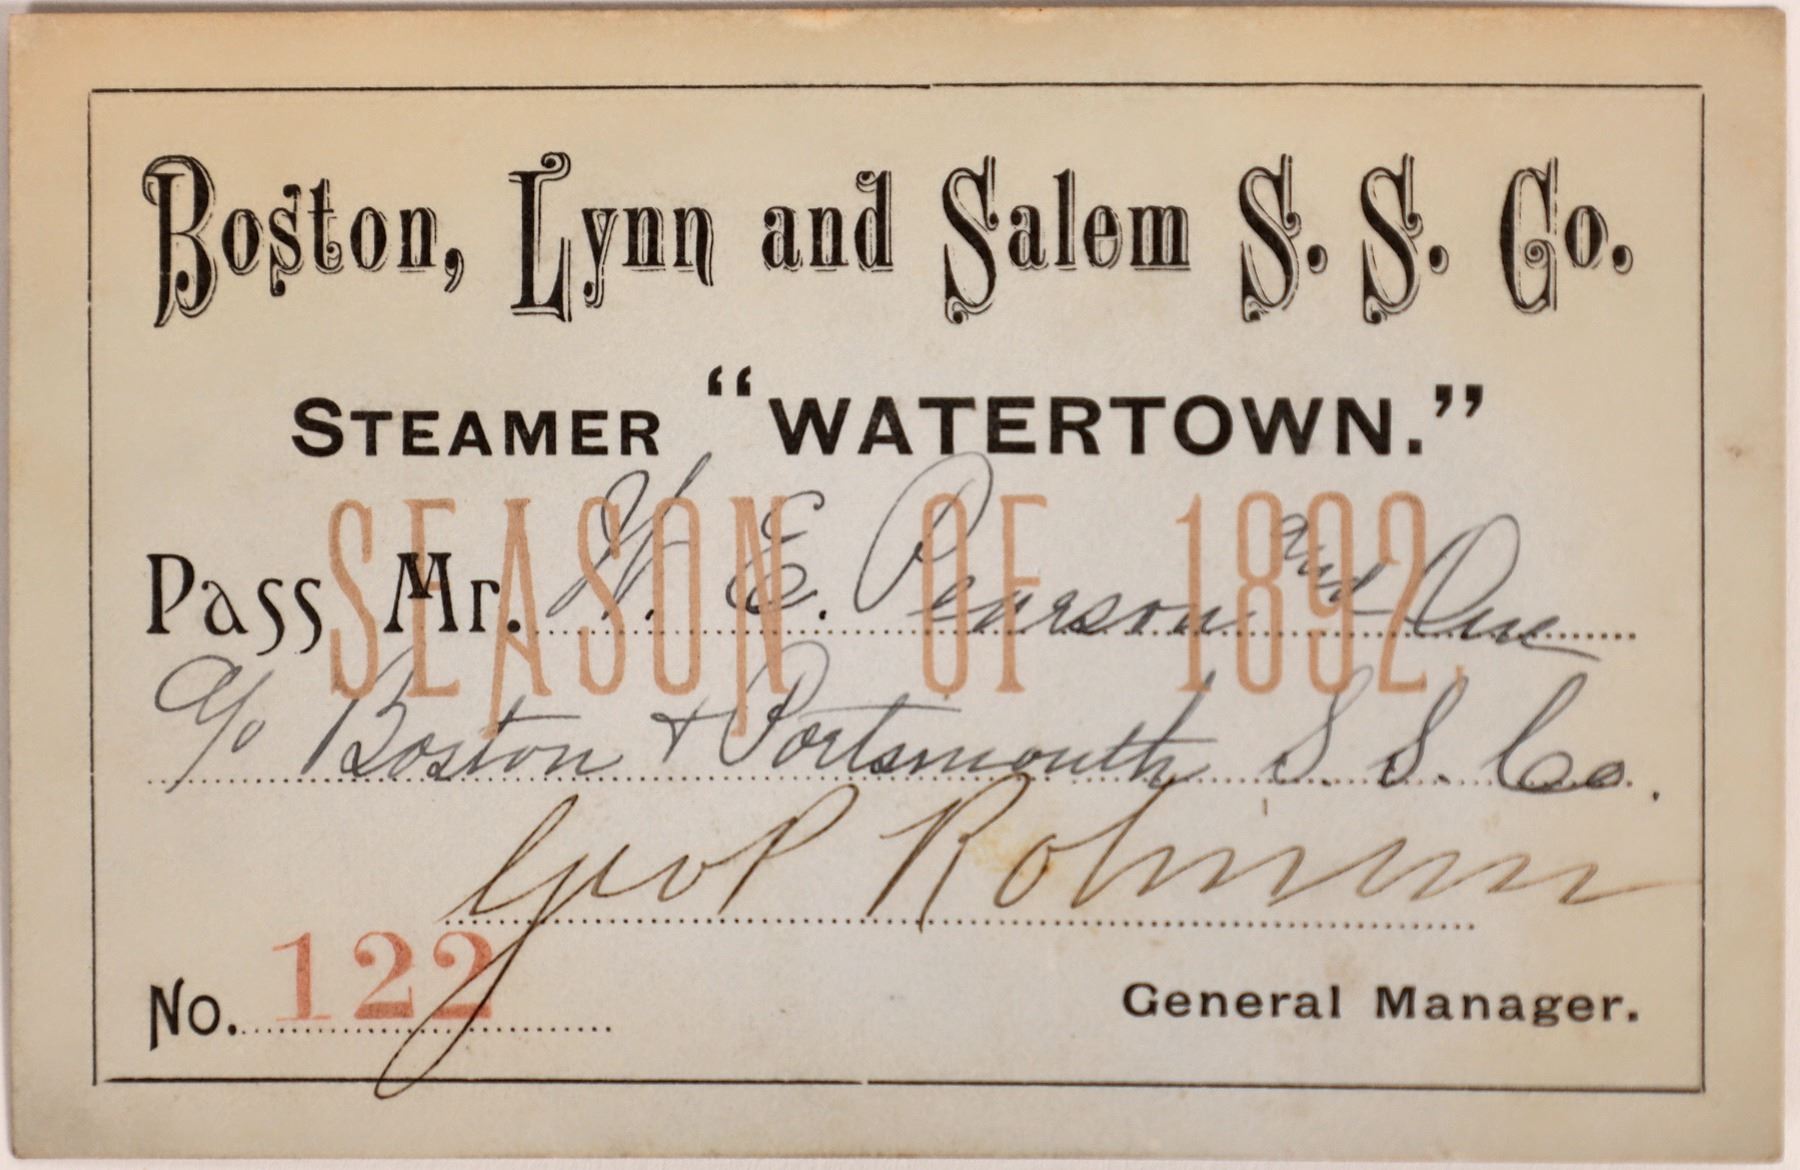 Boston, Lynn and Salem S. S. Co.
STEAMER "WATERTOWN."
SEASON OF 1892.
Pass Mr. W. E. Pearson and One
c/o Boston + Portsmouth S. S. Co.
Geo P Robinson
No. 122
General Manager.